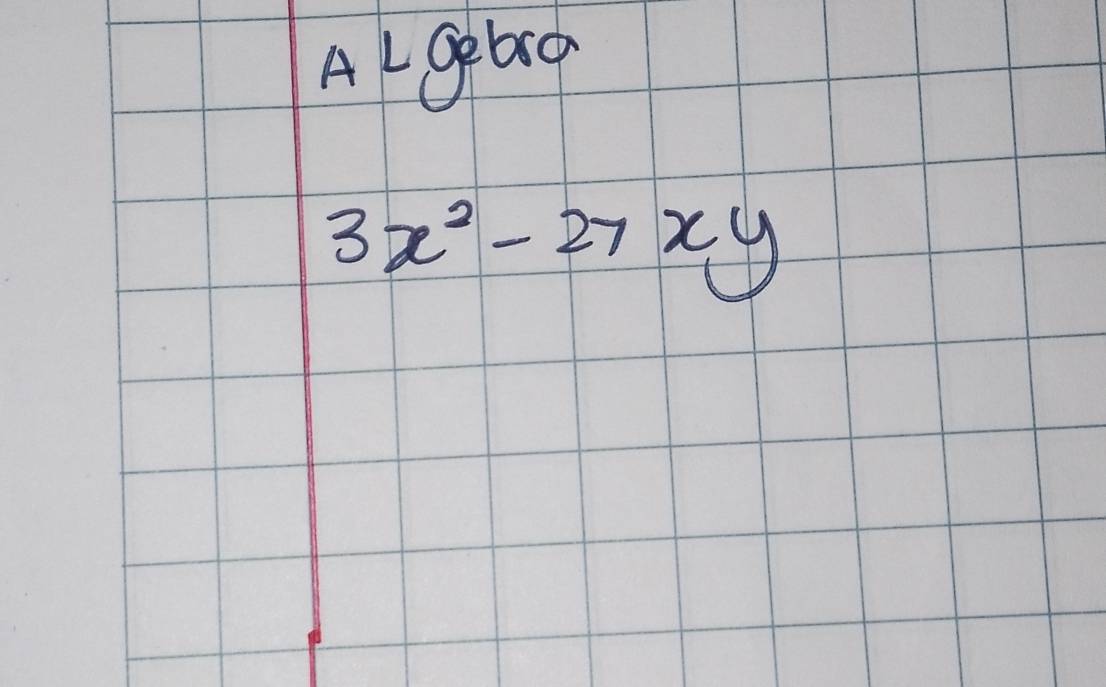 ALgebra
3x² - 27xy